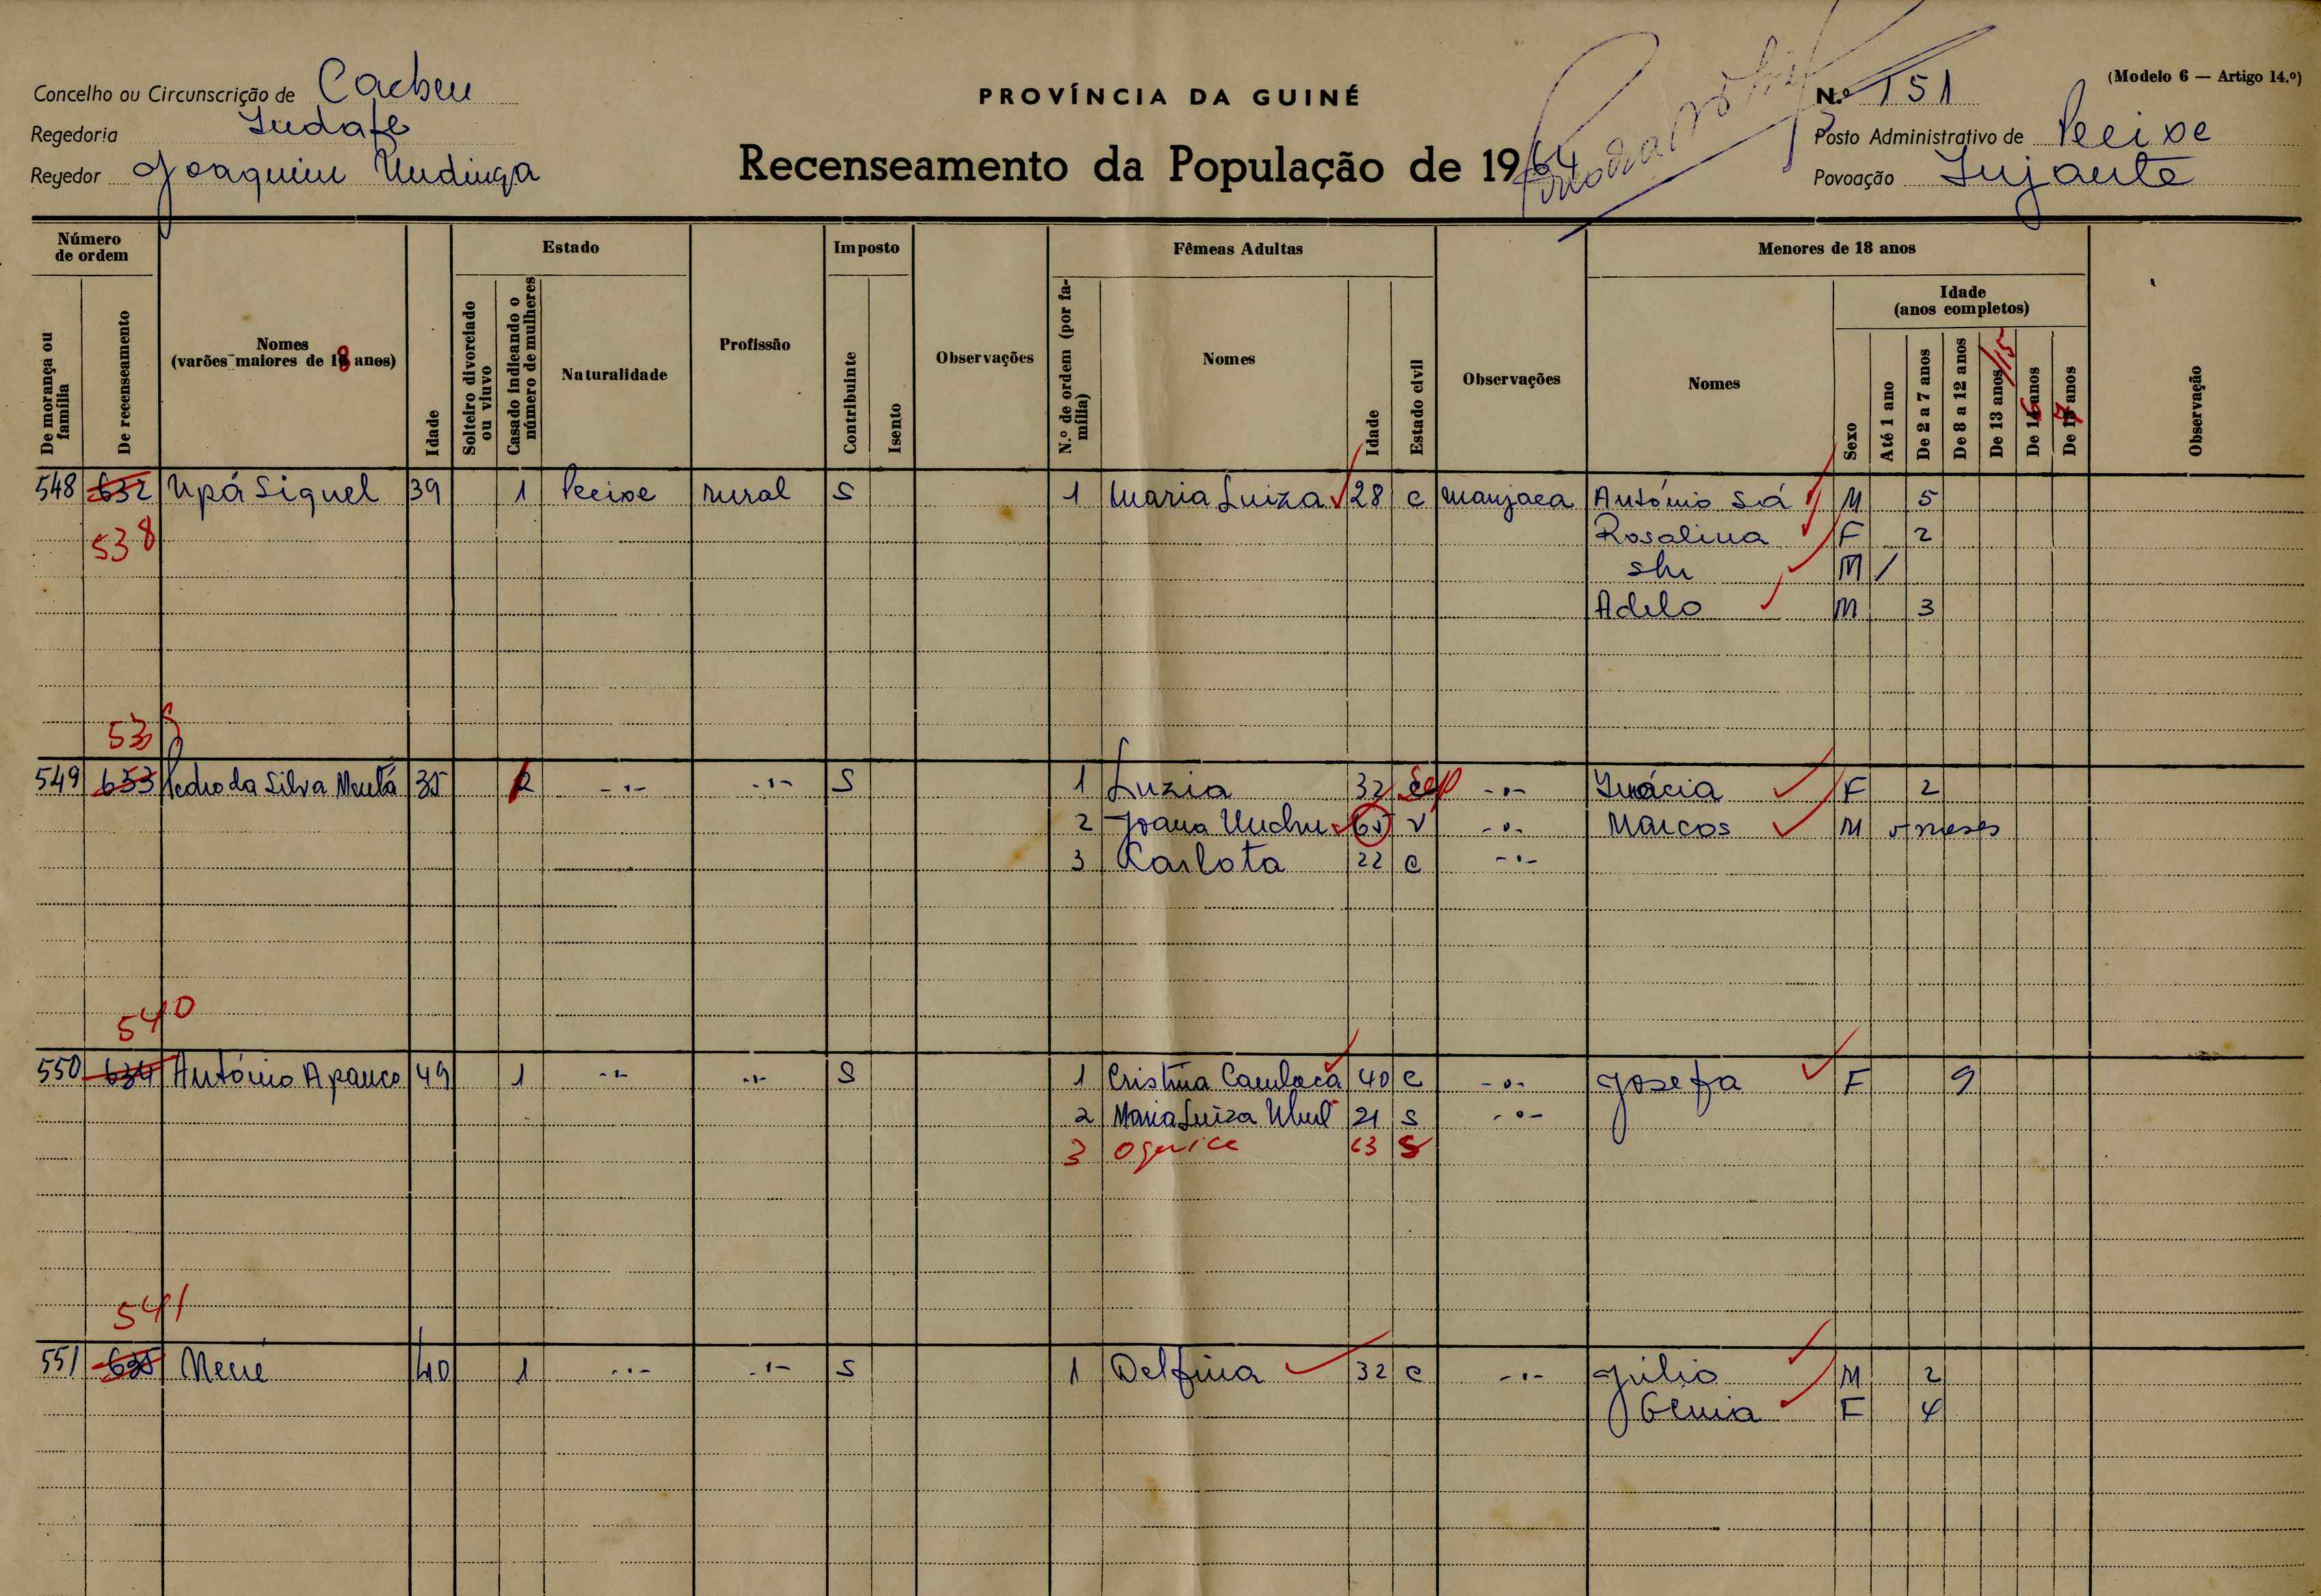 Concelho ou Circunscrição de Cacheu
Regedoria
Regedor Joaquim
PROVÍNCIA DA GUINÉ
Recenseamento da População de 1964
(Modelo 6 — Artigo 14.º)
N.º 151
Posto Administrativo de Pecixe
Povoação
Número de ordem
De morança ou família
De recenseamento
Nomes
(varões maiores de 18 anos)
Idade
Estado
Solteiro divorciado ou viuvo
Casado indicando o número de mulheres
Naturalidade
Profissão
Imposto
Contribuinte
Isento
Observações
Fêmeas Adultas
N.º de ordem (por família)
Nomes
Idade
Estado civil
Observações
Menores de 18 anos
Nomes
Idade
(anos completos)
Sexo
Até 1 ano
De 2 a 7 anos
De 8 a 12 anos
De 13 anos /15
De 16 anos
De 17 anos
Observação
548 632 Upá Siquel 39 1 Pecixe rural S 1 Maria Luiza 28 C manjaca António Sá M 5
538 Rosalina F 2
M /
Adelo M 3
539
549 633 Pedro da Silva 35 2 -"- -"- S 1 Luzia 32 Sep -"- Inácia F 2
2 Joana 65 V -"- Marcos M meses
3 Carlota 22 C -"-
540
550 634 António Apanco 49 1 -"- -"- S 1 Cristina 40 C -"- Josefa F 9
2 Maria Luiza 21 S -"-
3 63 S
541
551 635 Mené 40 1 -"- -"- S 1 Delfina 32 C -"- Júlio M 2
F 4